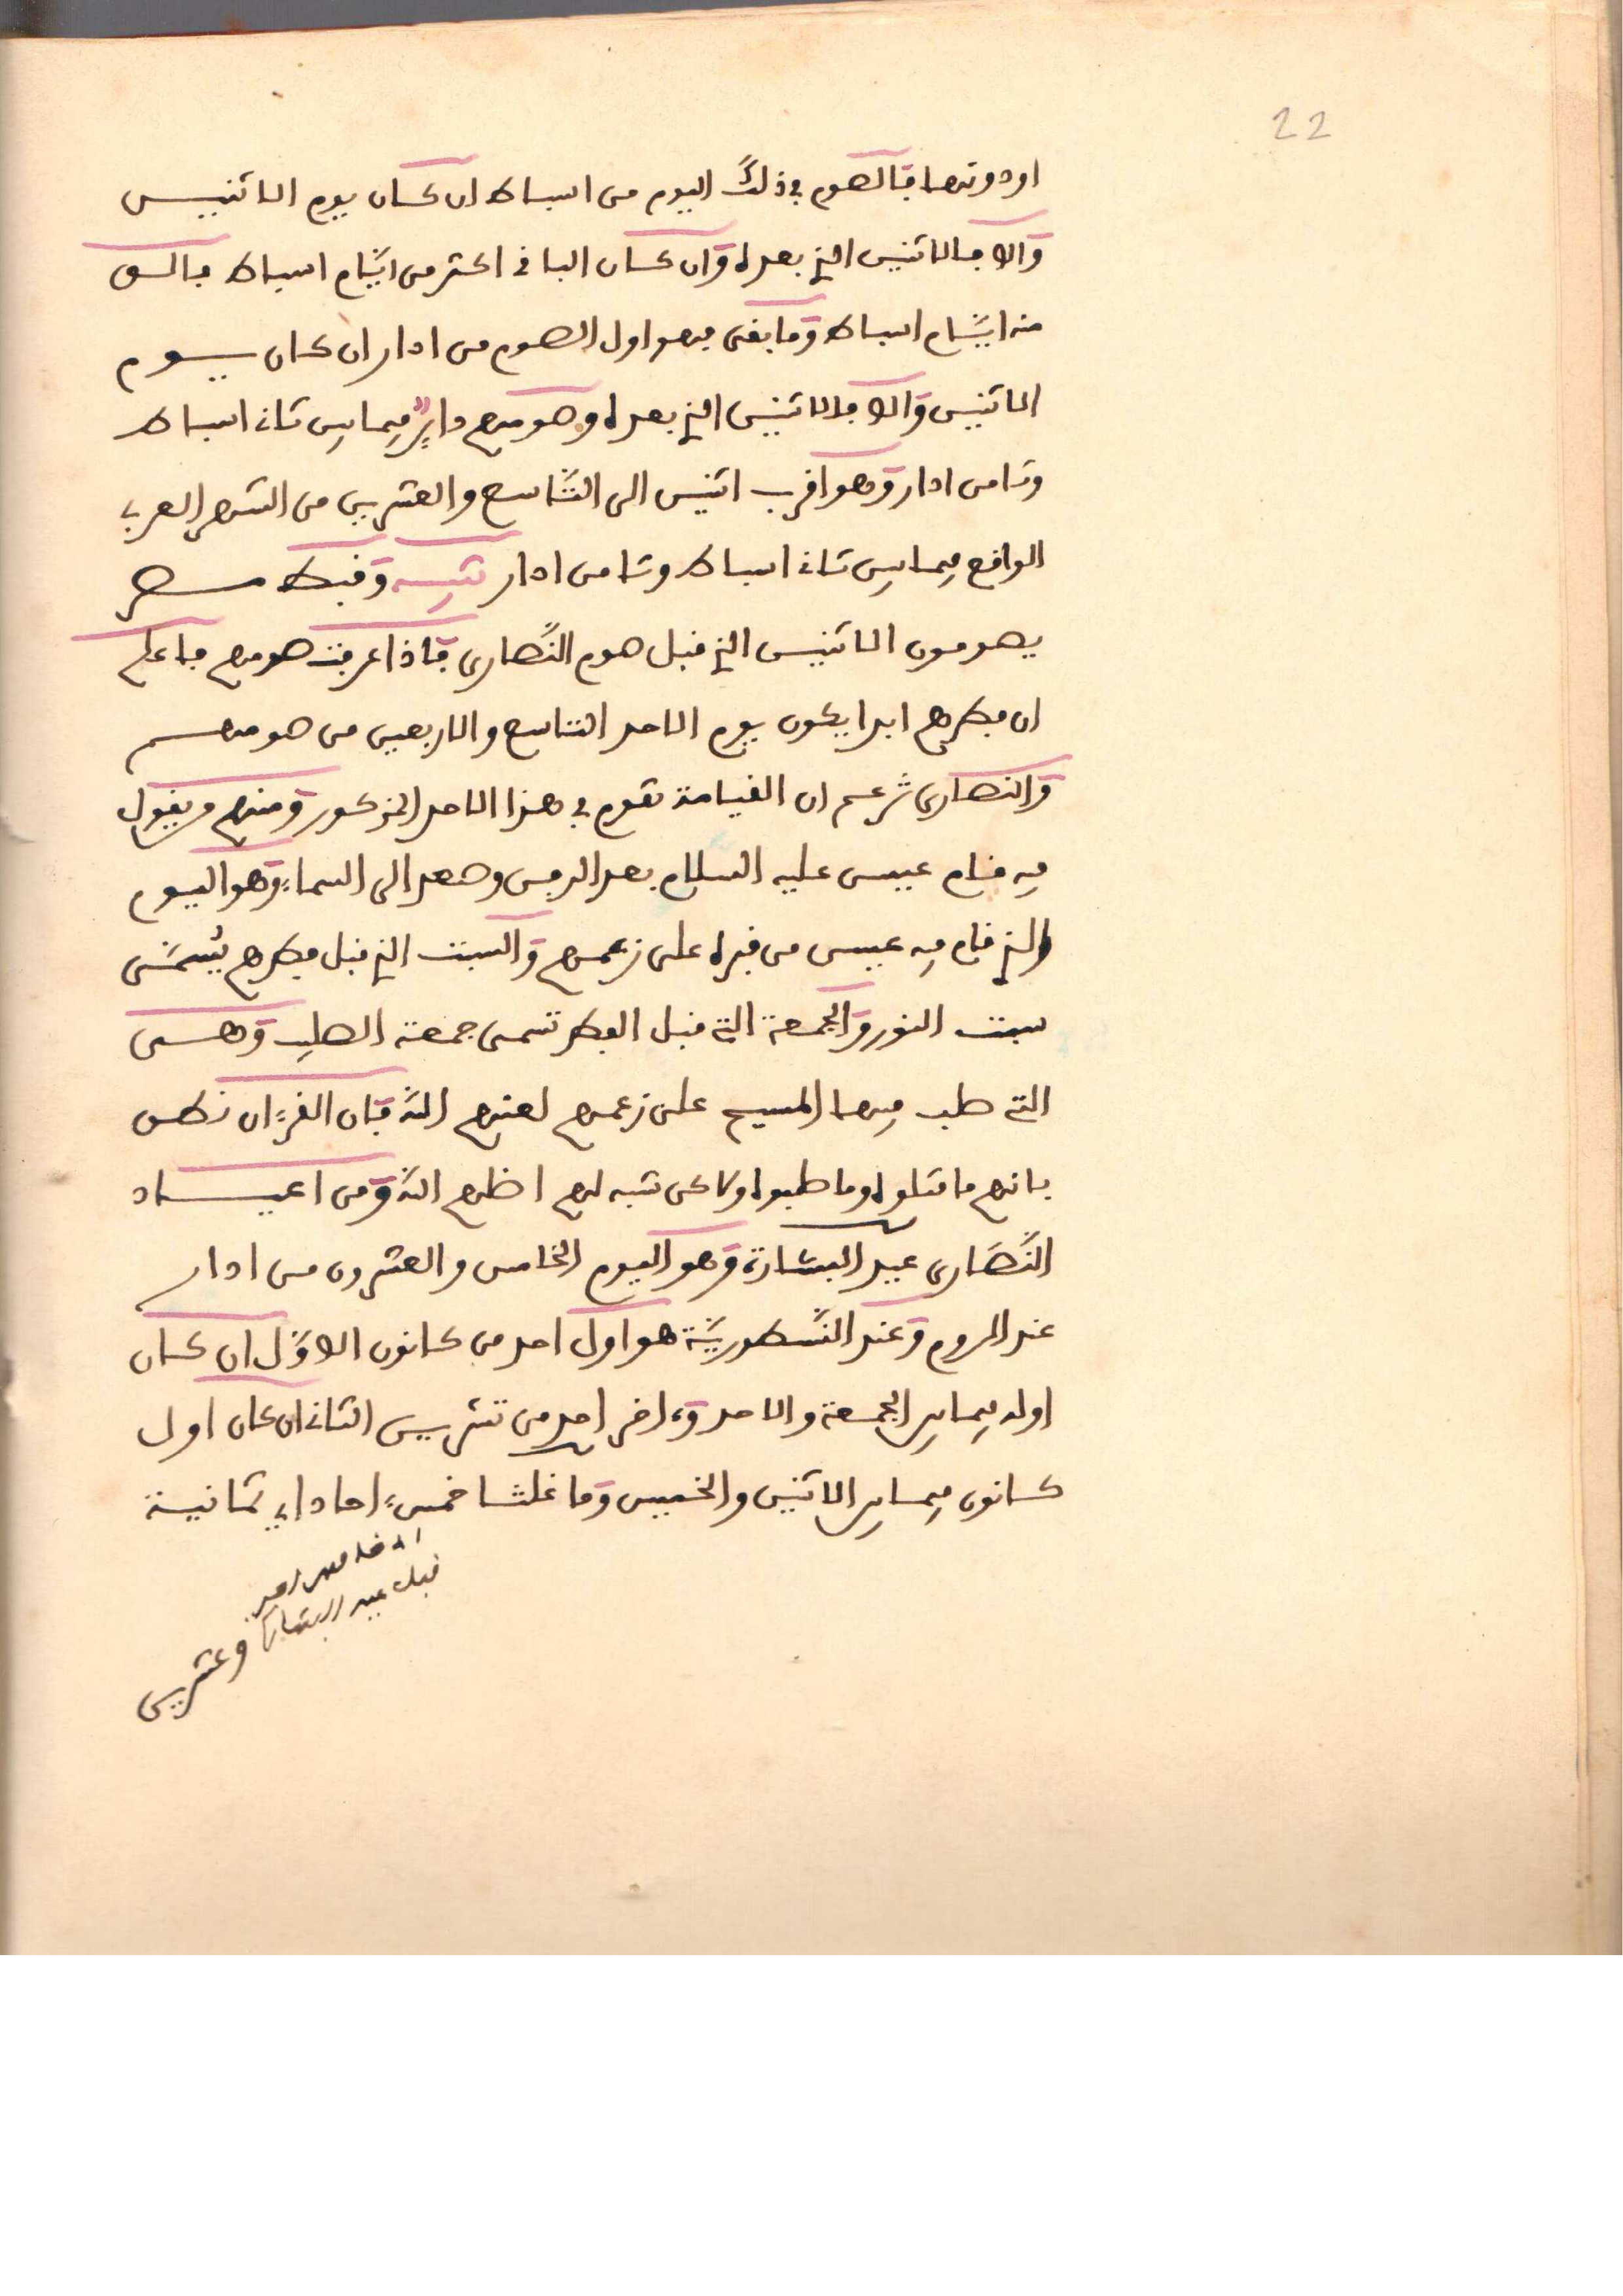 22
اودونها فالصوم في ذلك اليوم من اسباط ان كان يوم الاثنين
والا فالاثنين الذي بعده وان كان الباقي اكثر من ايام اسباط فالق
منه ايام اسباط وما بقى فهو اول الصوم من ادار ان كان يوم
الاثنين والا فالاثنين الذي بعده وصومهم داير فيما بين ثاني اسباط
وثامن ادار وهو اقرب اثنين الى التاسع والعشرين من الشهر العربي
الواقع فيما بين ثاني اسباط وثامن ادار تنبيه وقبط مصر
يصومون الاثنين الذي قبل صوم النصارى فاذا عرفت صومهم فاعلم
ان فطرهم ابدا يكون يوم الاحد التاسع والاربعين من صومهم
والنصارى تزعم ان القيامة تقوم في هذا الاحد المذكور ومنهم من يقول
فيه قام عيسى عليه السلام بعد الدفن وصعد الى السماء وهو اليوم
الذي قام فيه عيسى من قبره على زعمهم والسبت الذي قبل فطرهم يسمى
سبت النور والجمعة التي قبل الفطر تسمى جمعة الصلب وهي
التي صلب فيها المسيح على زعمهم لعنهم الله فان القرءان نطق
بانهم ما قتلوه وما صلبوه ولاكن شبه لهم اضلهم الله ومن اعياد
النصارى عيد البشارة وهو اليوم الخامس والعشرون من ادار
عند الروم وعند النسطورية هو اول احد من كانون الاول ان كان
اوله فيما بين الجمعة والاحد وءاخر احد من تشرين الثاني ان كان اول
كانون فيما بين الاثنين والخميس وما غلثا خمس ءاحاد اي ثمانية
قبل عيد البشارة
وعشرين